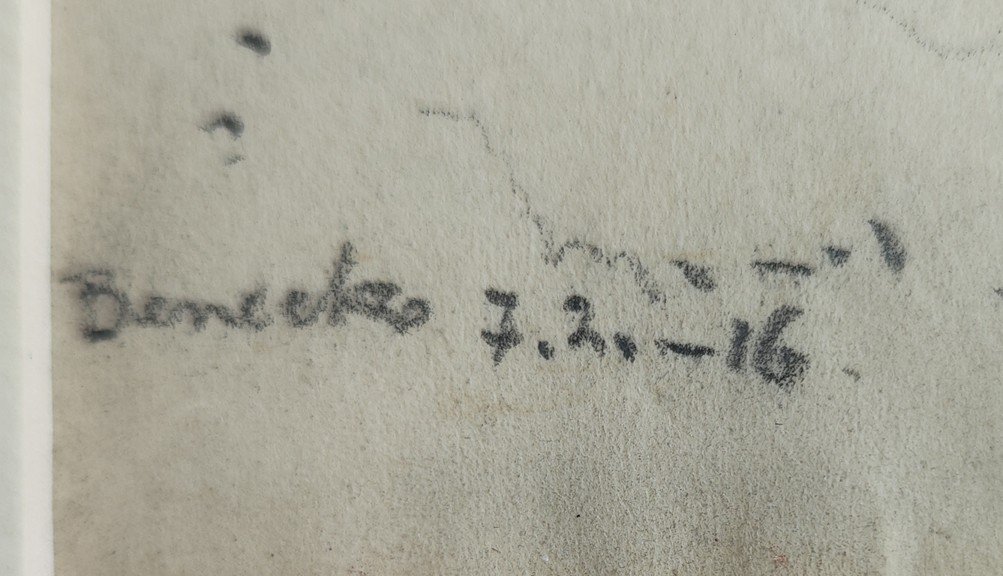 Benecke 7.2.–16